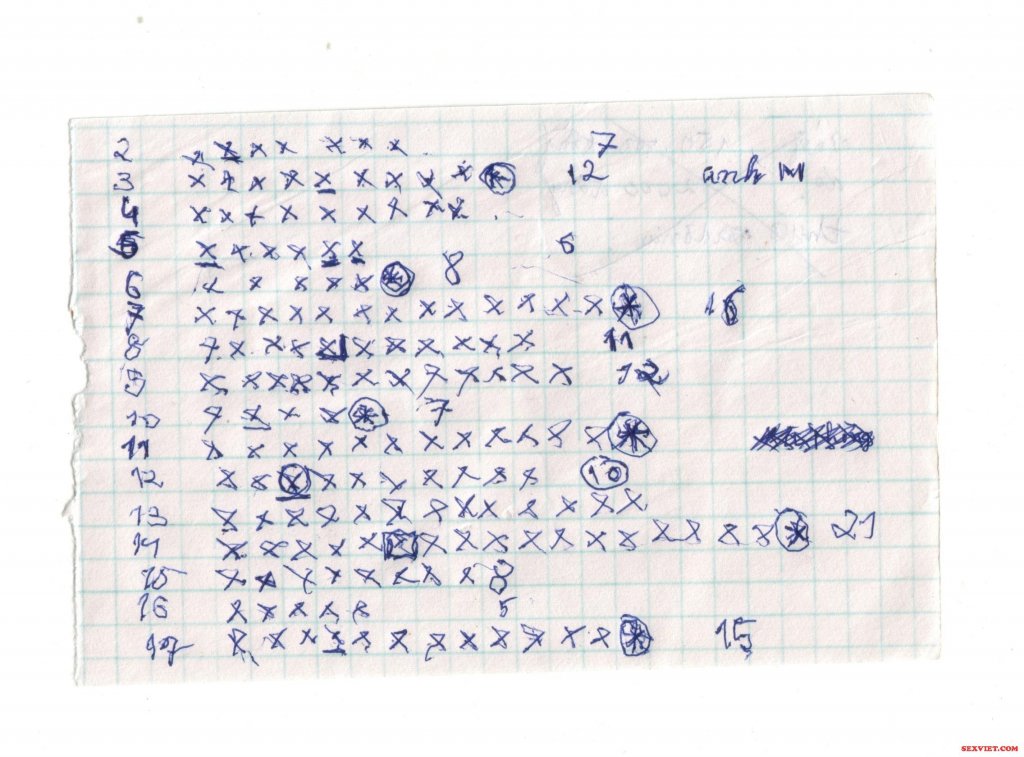 2 x x x x x x x 7
3 x x x x x x x x x x 12 anh M
4 x x x x x x x x x
5 x x x x x x 6
6 x x x x x x 8
7 x x x x x x x x x x x x x x 16
8 x x x x x x x x x x x 11
9 x x x x x x x x x x x x 12
10 x x x x x 7
11 x x x x x x x x x x x x x
12 x x x x x x x x x x 10
13 x x x x x x x x x x x x x
14 x x x x x x x x x x x x x x x x x x 21
15 x x x x x x x x 8
16 x x x x x 5
17 x x x x x x x x x x x x x 15
SEXVIET.COM